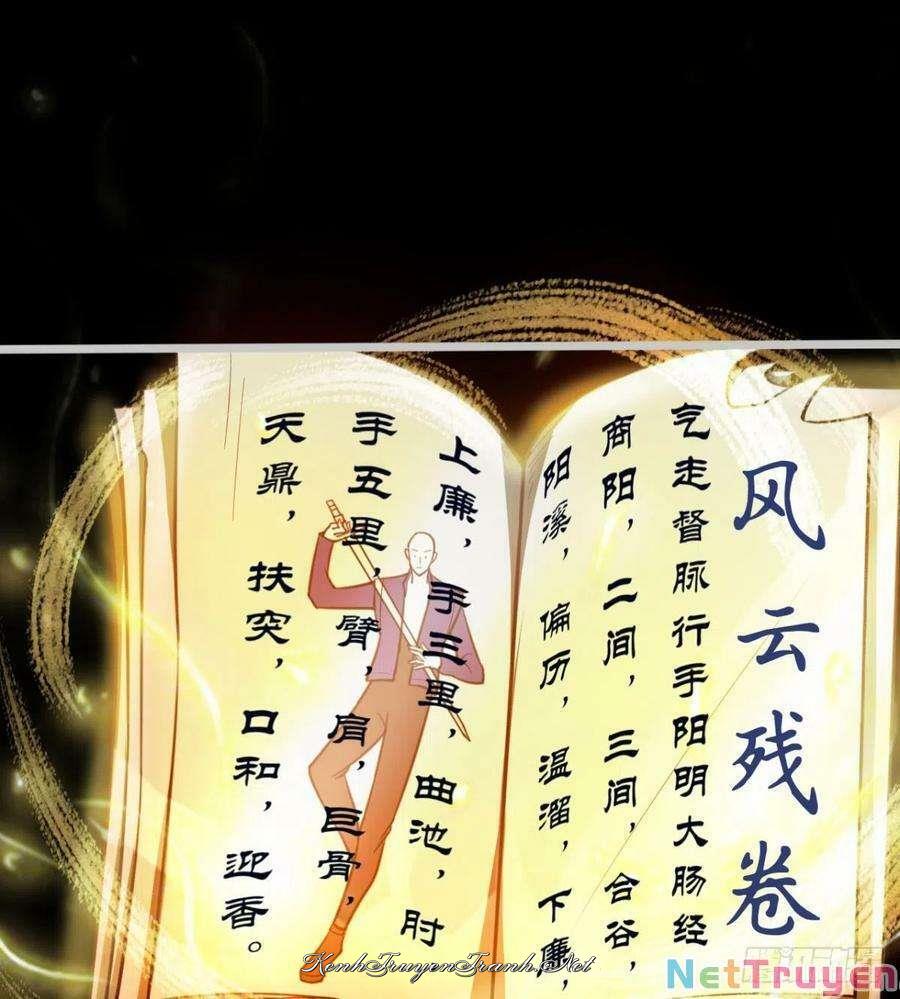 风云残卷
气走督脉行手阳明大肠经
商阳，二间，三间，合谷，
阳溪，偏历，温溜，下廉，
上廉，手三里，曲池，肘
手五里，臂，肩，巨骨，
天鼎，扶突，口和，迎香。
KenhTruyenTranh.Net
NetTruyen